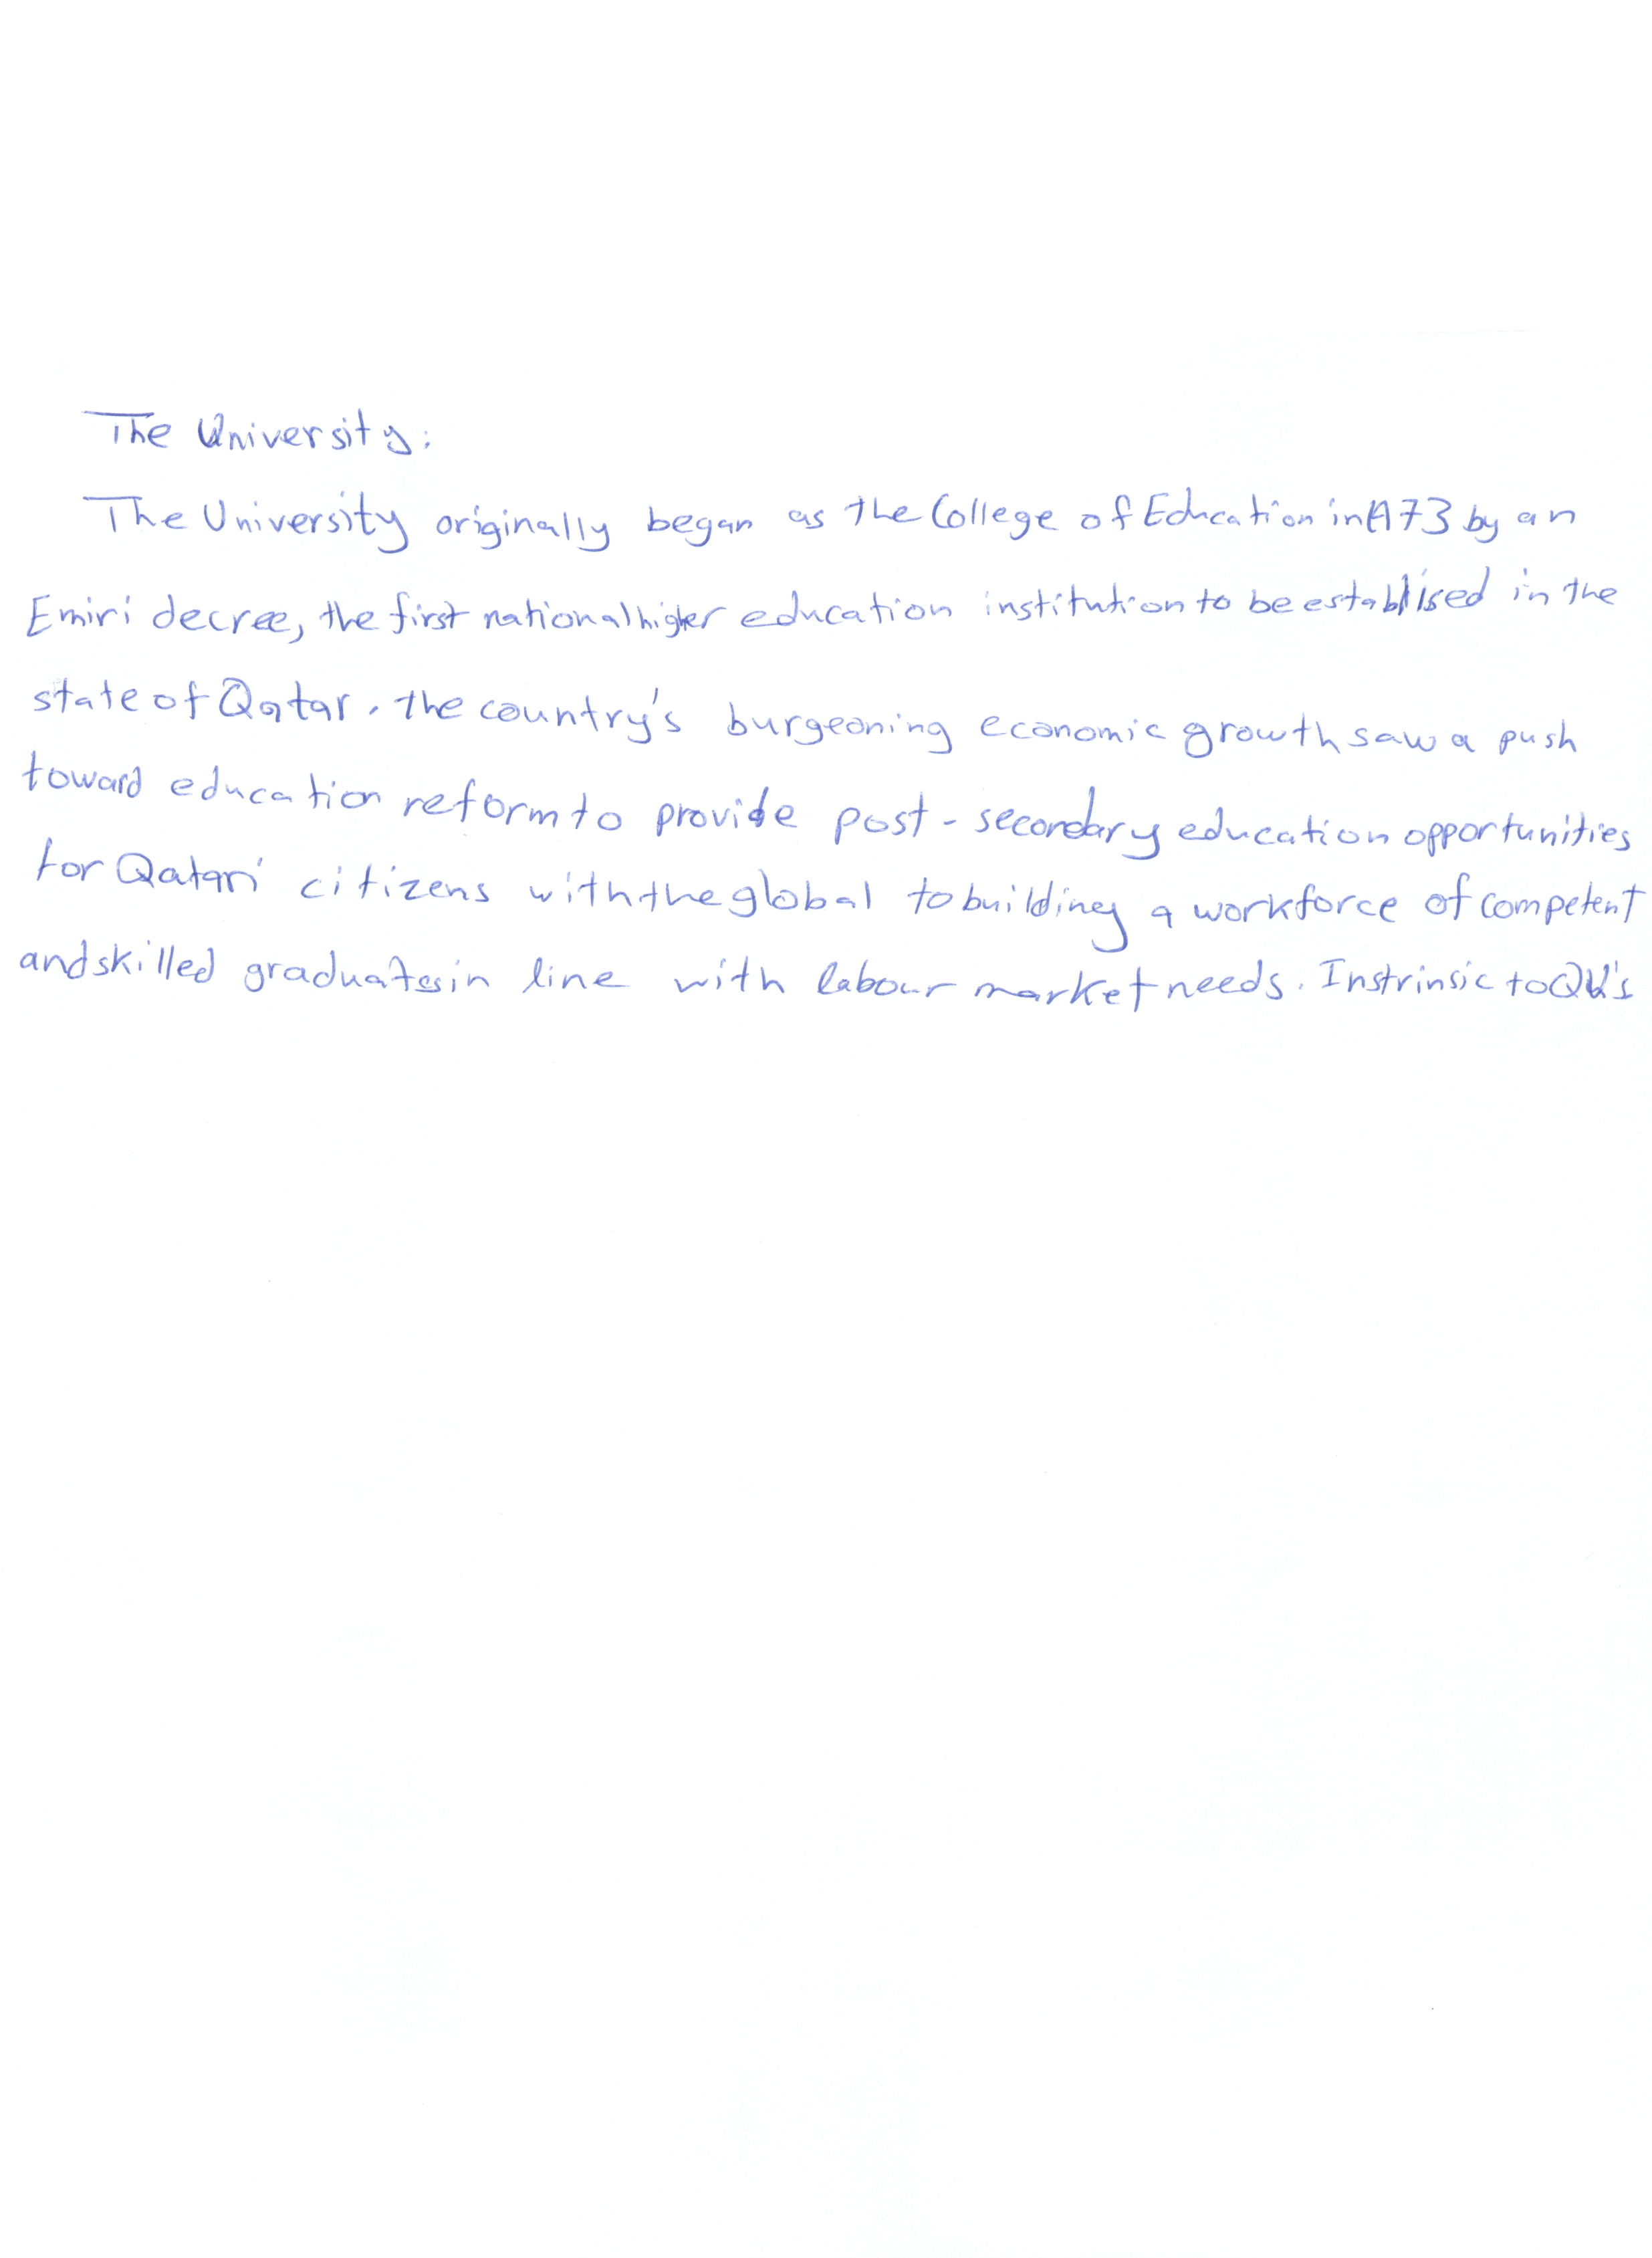 The University:
The University originally began as the College of Education in 1973 by an
Emiri decree, the first national higher education institution to be establised in the
state of Qatar. the country's burgeoning economic growth saw a push
toward education reform to provide post-secondary education opportunities
for Qatari citizens with the global to building a workforce of competent
and skilled graduates in line with labour market needs. Instrinsic to QU's